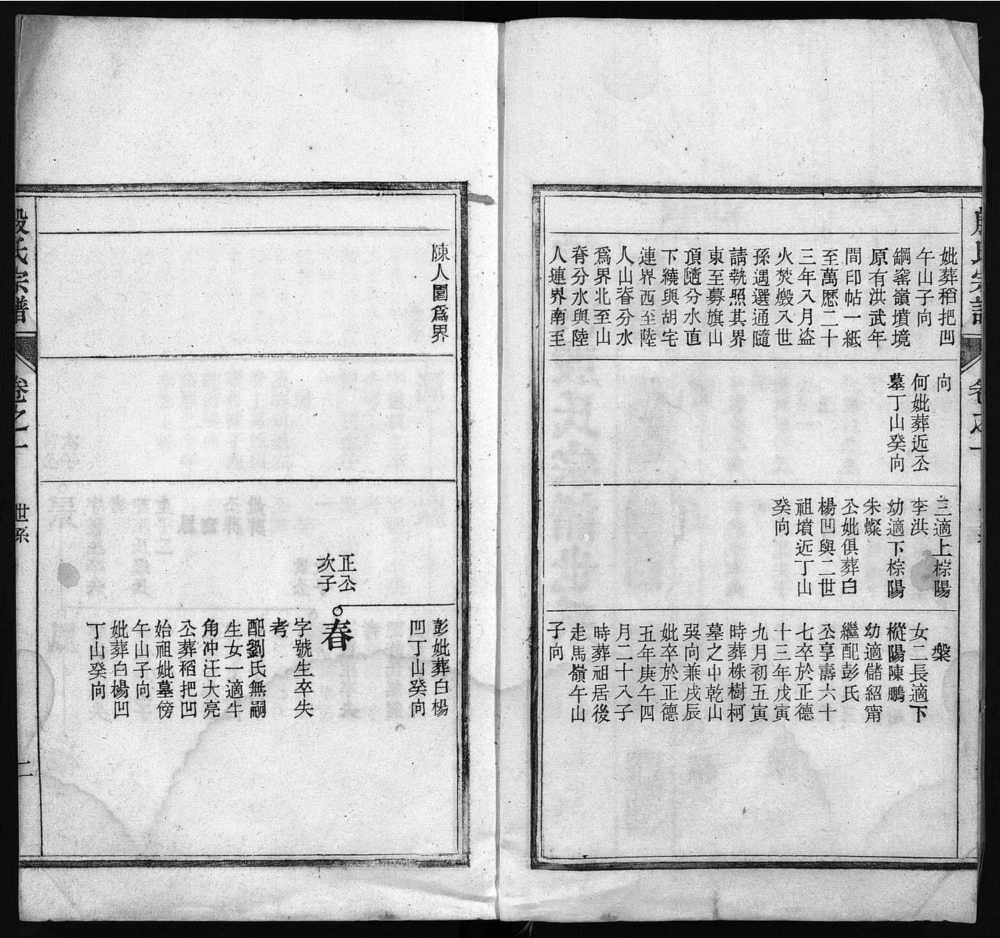 殷氏宗譜
卷之一
妣葬稻把凹
午山子向
鋼窰嶺墳境
原有洪武年
間印帖一紙
至萬歷二十
三年八月盗
火焚燬入世
孫遇選通隨
請執照其界
東至募旗山
頂隨分水直
下繞與胡宅
連界西至陸
人山脊分水
爲界北至山
脊分水與陸
人連界南至
向
何妣葬近公
墓丁山癸向
三適上棕陽
李洪
幼適下棕陽
朱燦
公妣俱葬白
楊凹與二世
祖墳近丁山
癸向
榮
女二長適下
樅陽陳鵬
幼適儲紹甯
繼配彭氏
公享壽六十
七卒於正德
十三年戊寅
九月初五寅
時葬株樹柯
墓之中乾山
巽向兼戌辰
妣卒於正德
五年庚午四
月二十八子
時葬祖居後
走馬嶺午山
子向
陳人園爲界
彭妣葬白楊
凹丁山癸向
正公
次子
春
字號生卒失
考
配劉氏無嗣
生女一適牛
角冲汪大亮
公葬稻把凹
始祖妣墓傍
午山子向
妣葬白楊凹
丁山癸向
殷氏宗譜
卷之一
世系
二